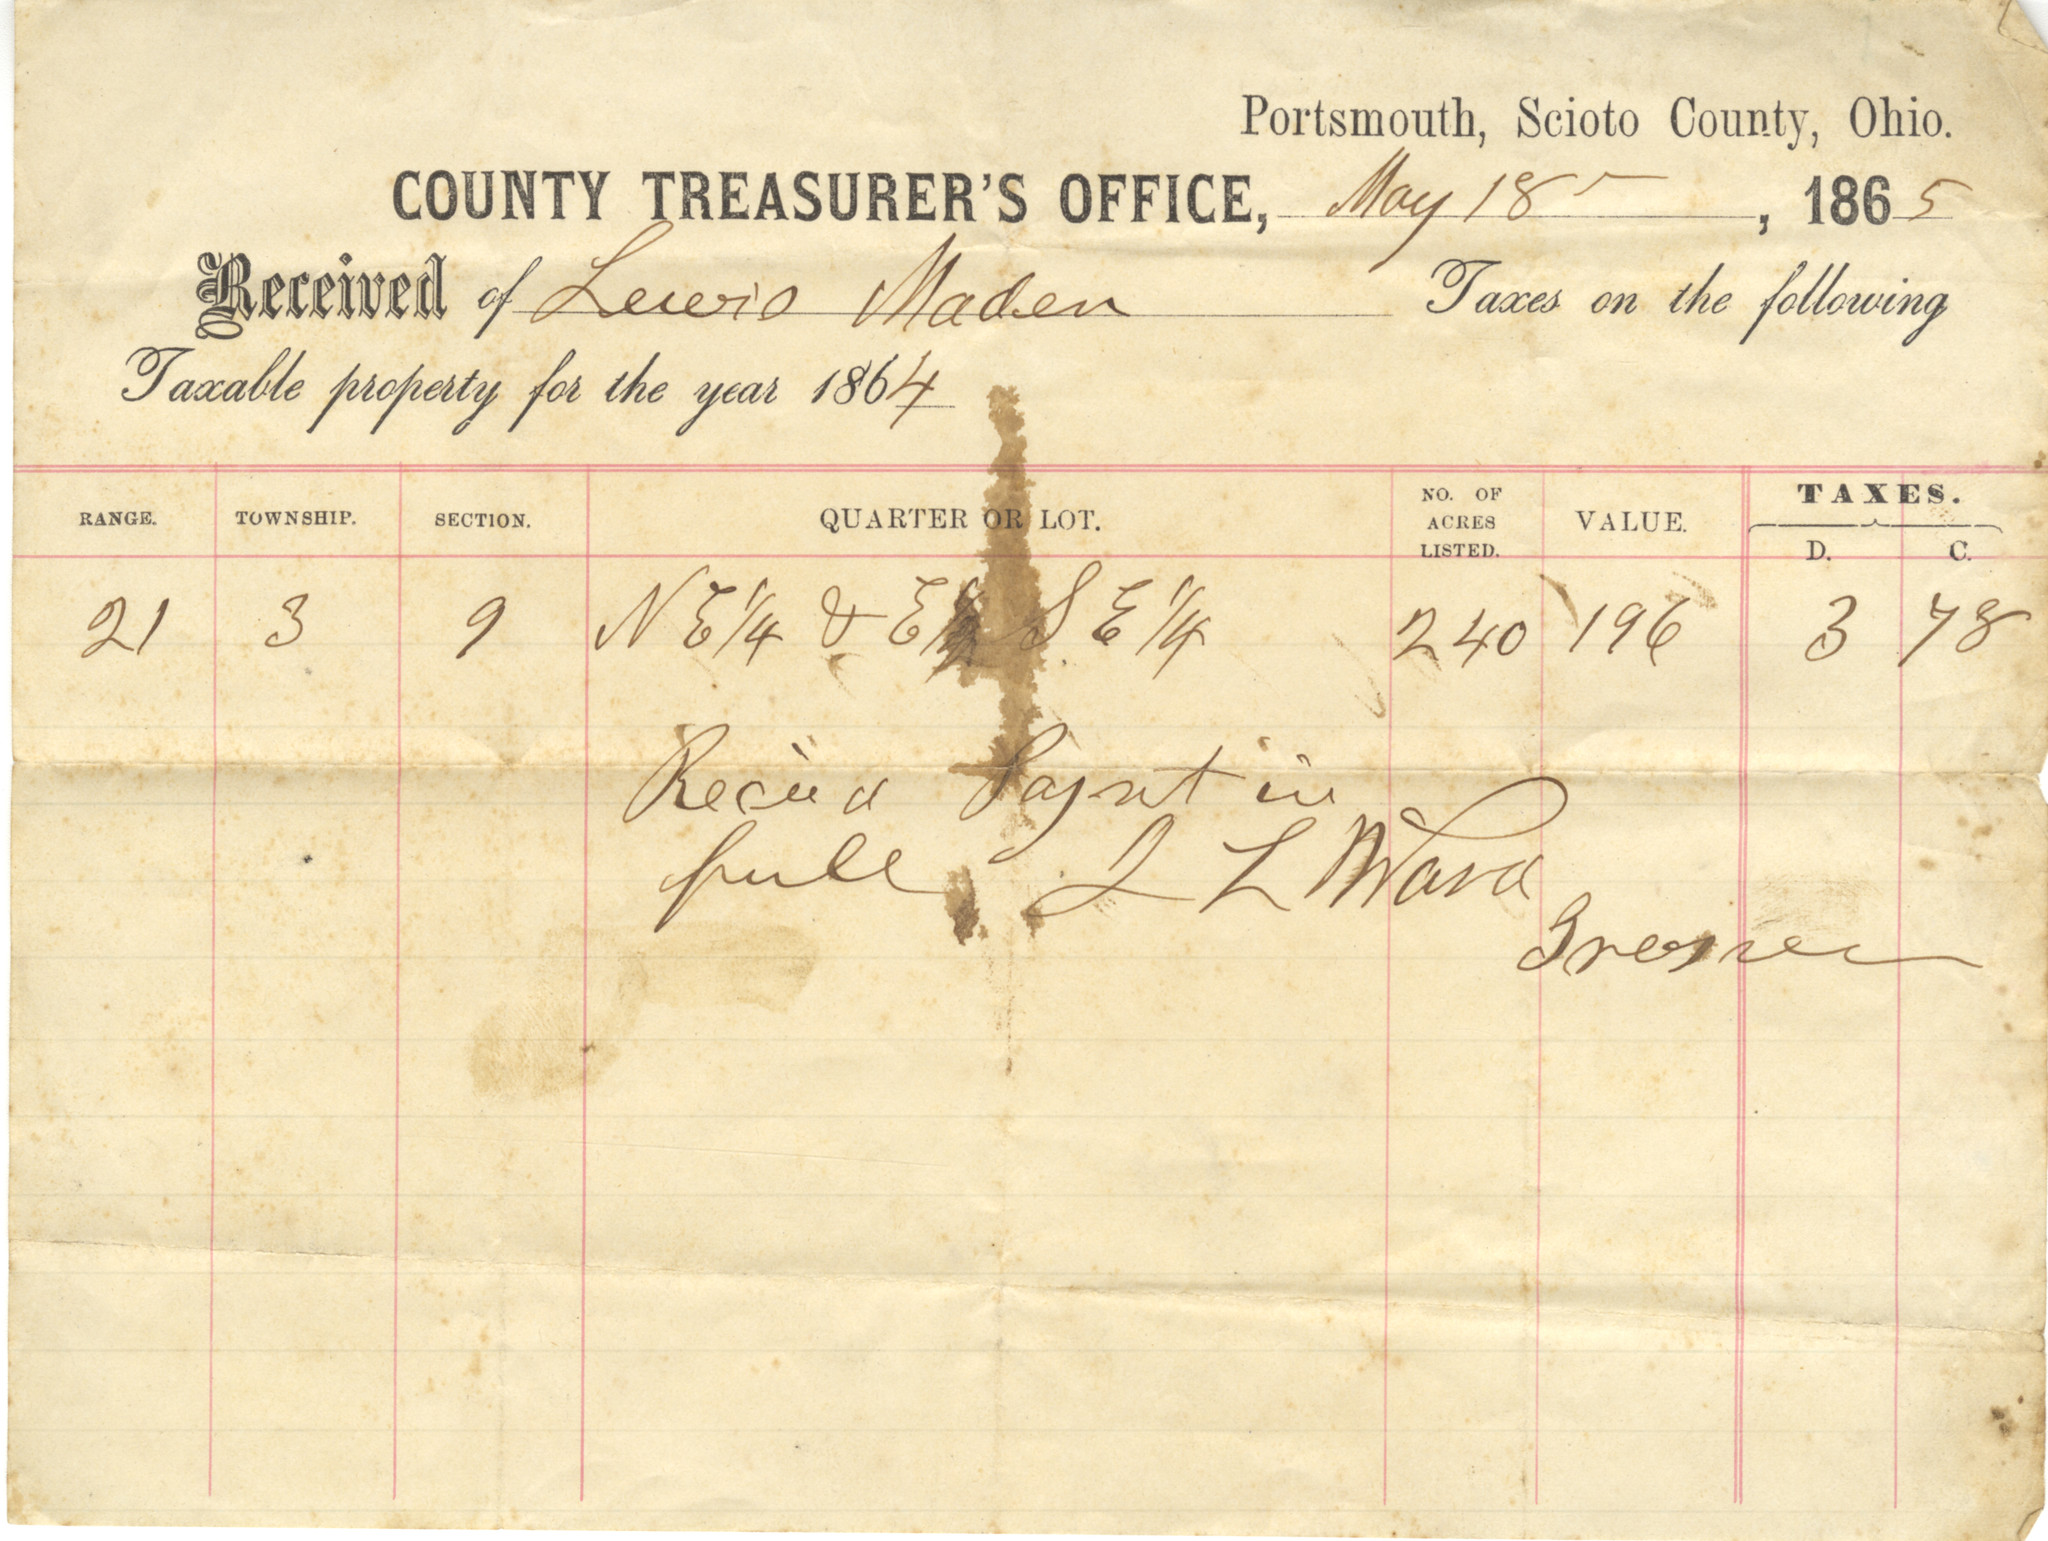 Portsmouth, Scioto County, Ohio.
COUNTY TREASURER'S OFFICE, May 18, 1865
Received of Lewis Maden Taxes on the following
Taxable property for the year 1864
RANGE. TOWNSHIP. SECTION. QUARTER OR LOT. NO. OF ACRES LISTED. VALUE. TAXES.
D. C.
21 3 9 N E 1/4 & E 1/2 S E 1/4 240 196 3 78
Reciud Paymt in
full J L Ward